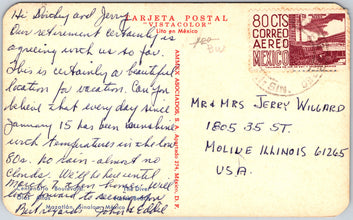 Hi Dicky and Jerry
TARJETA POSTAL
"VISTACOLOR"
Lito en México
Our retirement certainly is
agreeing with us so far.
This is certainly a beautiful
location for vacation. Can you
believe that every day since
January 15 has been sunshine
with temperatures in the low
80s. no rain - almost no
clouds. We'll be here until
March then home. We'll
look forward to seeing you
Best regards John & Ethel
Mazatlán, Sinaloa, México
AMMEX ASOCIADOS, S. A. Apartado 274, México, D. F.
80 CTS
CORREO
AEREO
MEXICO
MR & MRS JERRY WILLARD
1805 35 ST.
MOLINE ILLINOIS 61265
USA.